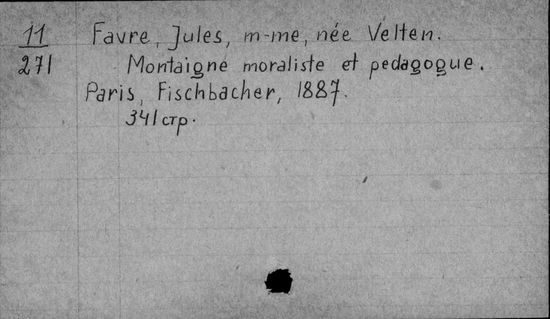 11 Favre, Jules, m-me, née Velten.
271 Montaigne moraliste et pedagogue.
Paris, Fischbacher, 1887.
341 стр.